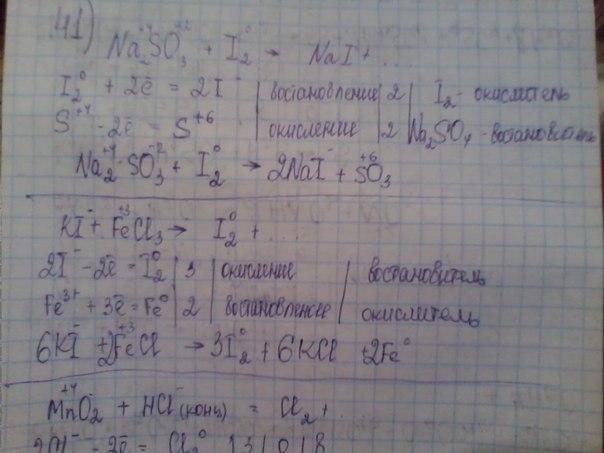 41)
Na₂S⁺⁴O₃⁻² + I₂⁰ → NaI + ...
I₂⁰ + 2ē = 2I⁻ | востановление | 2 | I₂ - окислитель
S⁺⁴ - 2ē = S⁺⁶ | окисление | 2 | Na₂SO₄ - востановитель
Na₂S⁺⁴O₃⁻² + I₂⁰ → 2NaI⁻ + S⁺⁶O₃
KI⁻ + Fe⁺³Cl₃ → I₂⁰ + ...
2I⁻ - 2ē = I₂⁰ | 3 | окисление | востановитель
Fe³⁺ + 3ē = Fe⁰ | 2 | востановление | окислитель
6KI⁻ + 2Fe⁺³Cl → 3I₂⁰ + 6KCl + 2Fe⁰
Mn⁺⁴O₂ + HCl⁻ (конц) = Cl₂ + ...
2Cl⁻ - 2ē = Cl₂⁰